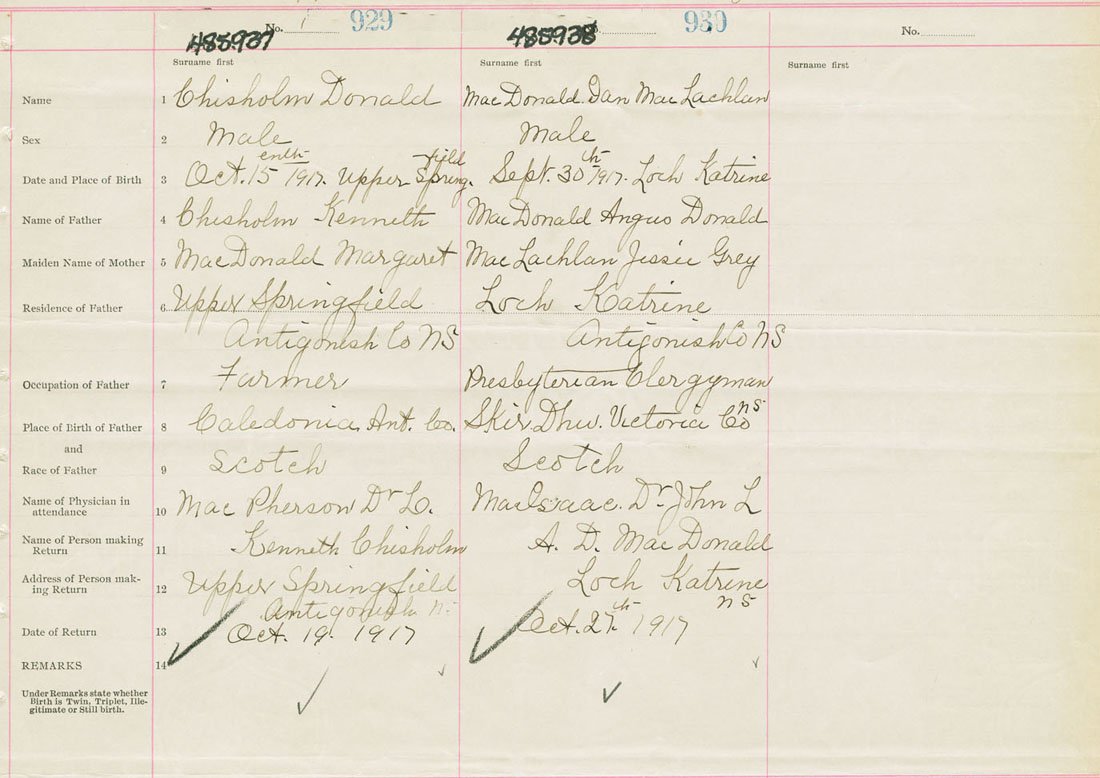 No. 929 930 No.
485937 485938
Surname first Surname first Surname first
Name 1 Chisholm Donald MacDonald Dan MacLachlan
Sex 2 Male Male
Date and Place of Birth 3 Oct. 15enth 1917. Upper Springfield Sept. 30th 1917. Loch Katrine
Name of Father 4 Chisholm Kenneth MacDonald Angus Donald
Maiden Name of Mother 5 MacDonald Margaret MacLachlan Jessie Grey
Residence of Father 6 Upper Springfield Loch Katrine
Antigonish Co NS Antigonish Co NS
Occupation of Father 7 Farmer Presbyterian Clergyman
Place of Birth of Father 8 Caledonia Ant. Co. Skir Dhu. Victoria Co NS
and
Race of Father 9 Scotch Scotch
Name of Physician in
attendance 10 MacPherson Dr L. MacIsaac. Dr. John L
Name of Person making
Return 11 Kenneth Chisholm A. D. MacDonald
Address of Person mak-
ing Return 12 Upper Springfield Loch Katrine
Antigonish NS
Date of Return 13 Oct. 19. 1917 Oct. 27th 1917
REMARKS 14
Under Remarks state whether
Birth is Twin, Triplet, Ille-
gitimate or Still birth.